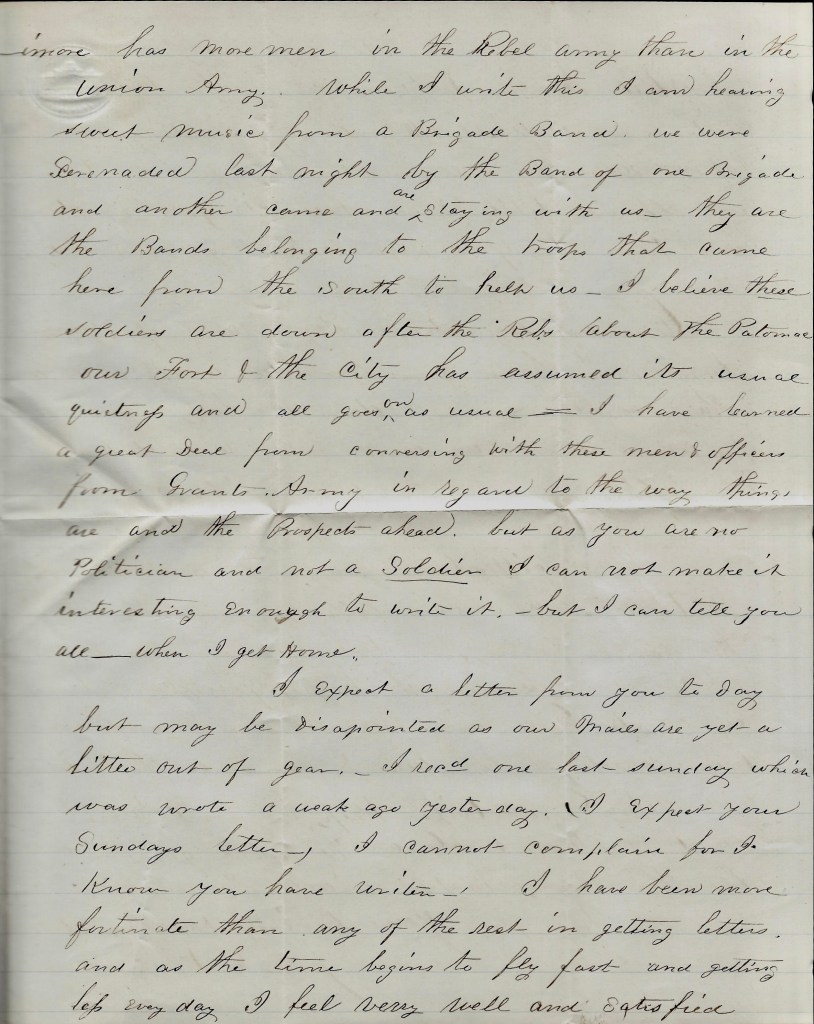 imore has more men in the Rebel army than in the
Union Army. While I write this I am hearing
sweet music from a Brigade Band. we were
Serenaded last night by the Band of one Brigade
and another came and are staying with us – they are
the Bands belonging to the troops that came
here from the South to help us – I believe these
soldiers are down after the Rebs about the Patomac
our Fort & the City has assumed its usual
quietness and all goes on as usual = I have learned
a great Deal from conversing with these men & officers
from Grants Army in regard to the way things
are and the Prospects ahead. but as you are no
Politician and not a Soldier I can not make it
interesting Enough to write it. – but I can tell you
all — when I get Home.
I Expect a letter from you to Day
but may be Disapointed as our Mails are yet a
little out of gear. – I recd one last sunday which
was wrote a weak ago yesterday. (I Expect your
Sundays letter –) I cannot complain for I
Know you have writen – I have been more
fortinate than any of the rest in getting letters.
and as the time begins to fly fast and getting
less Every day I feel verry well and Satisfied